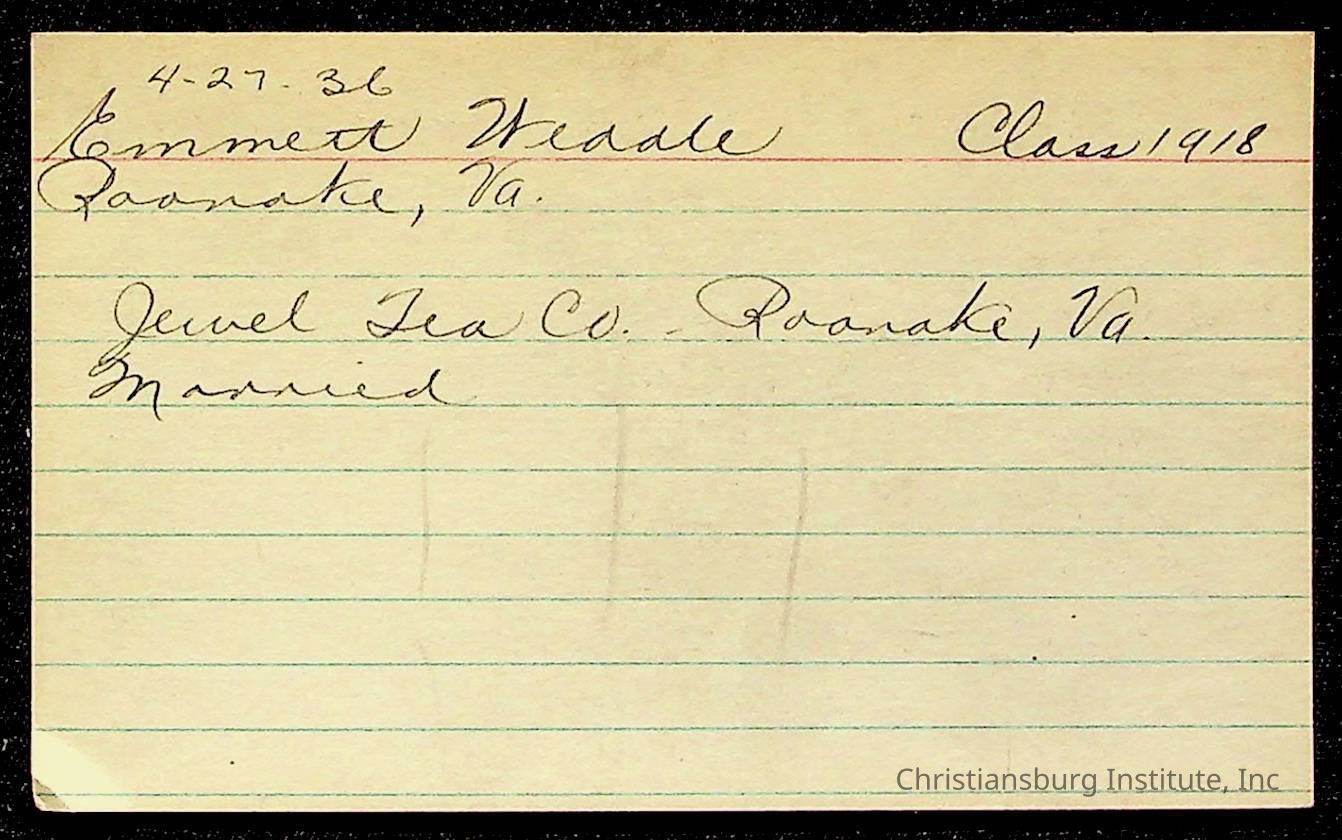 4-27-36
Emmett Weddle Class 1918
Roanoke, Va.
Jewel Tea Co. - Roanoke, Va.
Married
Christiansburg Institute, Inc